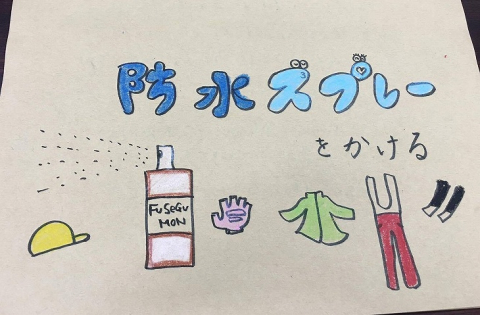 防水スプレー
をかける
FuSeGu
MON